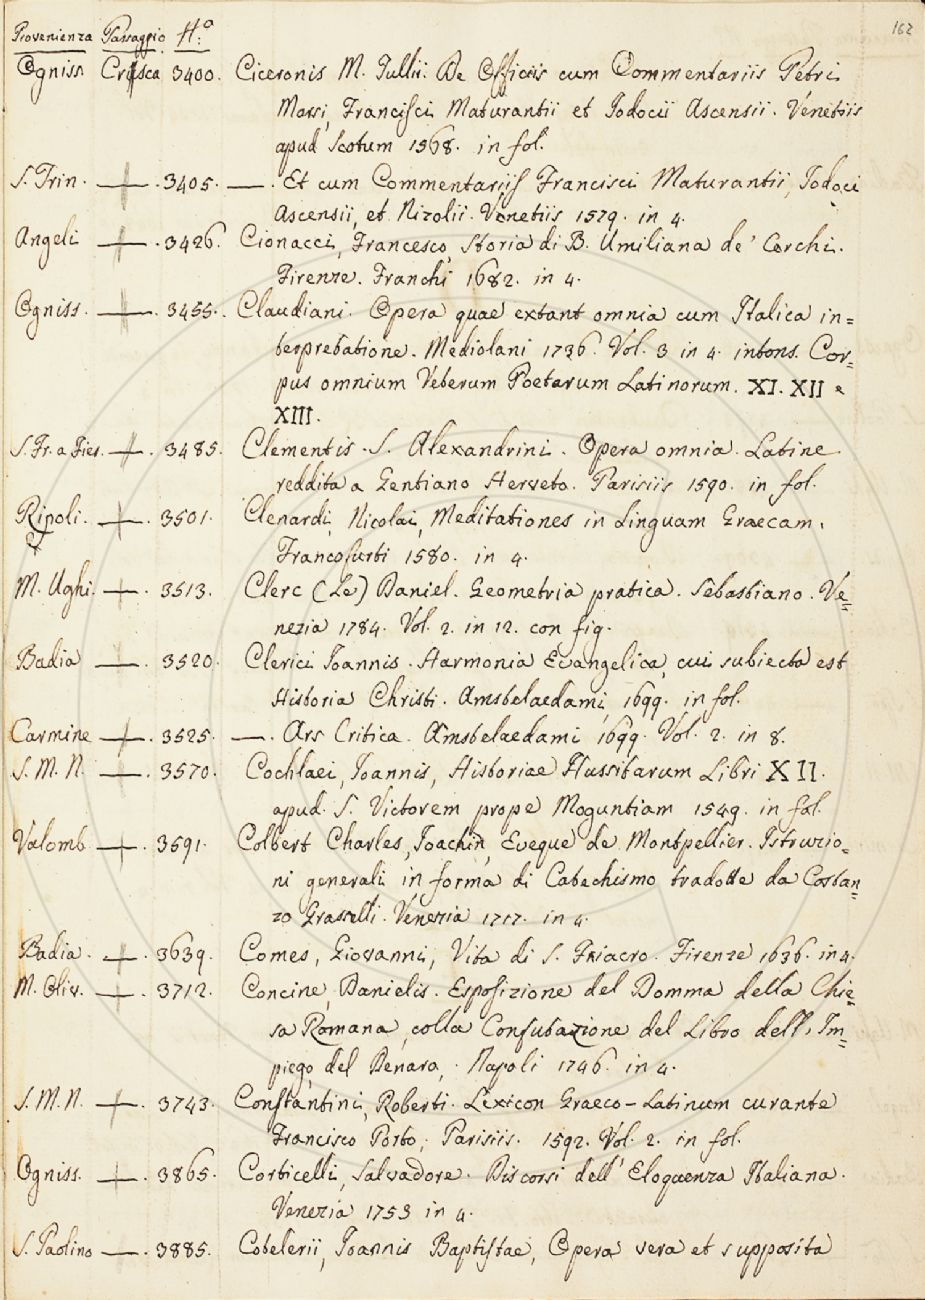 162
Provenienza Passaggio N.º
Ogniss. Crusca 3400. Ciceronis M. Tullii. De Officiis cum Commentariis Petri
Marsi, Francisci Maturantii et Jodocii Ascensii. Venetiis
apud Scotum 1568. in fol.
S. Trin. — . 3405. — . Et cum Commentariis Francisci Maturantii, Jodoci
Ascensii, et Nizolii. Venetiis 1579. in 4.
Angeli — . 3426. Cionacci, Francesco, Storia di B. Umiliana de' Cerchi.
Firenze. Franchi 1682. in 4.
Ogniss. — . 3455. Claudiani. Opera quae extant omnia cum Italica in=
terpretatione. Mediolani 1736. Vol. 3 in 4. intons. Cor=
pus omnium Veterum Poetarum Latinorum. XI. XII e
XIII.
S. Fr. a Fies. — . 3485. Clementis S. Alexandrini. Opera omnia. Latine
reddita a Gentiano Herveto. Parisiis 1590. in fol.
Ripoli. — . 3501. Clenardi, Nicolai, Meditationes in Linguam Graecam.
Francofurti 1580. in 4.
M. Ughi. — . 3513. Clerc (Le) Daniel. Geometria pratica. Sebastiano. Ve=
nezia 1784. Vol. 2. in 12. con fig.
Badia — . 3520. Clerici Joannis. Harmonia Evangelica, cui subiecta est
Historia Christi. Amstelaedami, 1699. in fol.
Carmine — . 3525. — . Ars Critica. Amstelaedami 1699. Vol. 2. in 8.
S. M. N. — . 3570. Cochlaei, Joannis, Historiae Hussitarum Libri XII.
apud S. Victorem prope Moguntiam 1549. in fol.
Valomb. — . 3591. Colbert Charles, Joachin, Eveque de Montpellier. Istruzio=
ni generali in forma di Catechismo tradotte da Costan=
zo Grasselli. Venezia 1717. in 4.
Badia. — . 3639. Comes, Giovanni, Vita di S. Friacro. Firenze 1636. in 4.
M. Oliv. — . 3712. Concine, Danielis. Esposizione del Domma della Chie=
sa Romana, colla Confutazione del Libro dell' Im=
piego del Denaro, . Napoli 1746. in 4.
S. M. N. — . 3743. Constantini, Roberti. Lexicon Graeco-Latinum curante
Francisco Porto, Parisiis. 1592. Vol. 2. in fol.
Ogniss. — . 3865. Corticelli, Salvadore. Discorsi dell' Eloquenza Italiana.
Venezia 1753 in 4.
S. Paolino — . 3885. Cotelerii, Joannis Baptistae, Opera vera et supposita